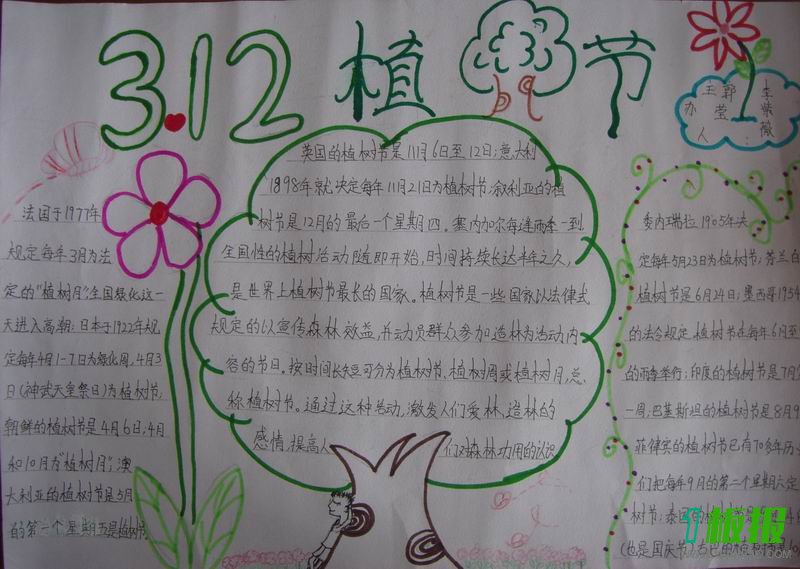 3.12 植 节
王 郭 李
办 莹 紫
人: 薇
法国于1977年
规定每年3月为法
定的"植树月",全国绿化这一
天进入高潮;日本于1922年规
定每年4月1-7日为绿化周,4月3
日(神武天皇祭日)为植树节,
朝鲜的植树节是4月6日;4月
和10月为"植树月";澳
大利亚的植树节是5月
的第 个星期五是植树节
英国的植树节是11月6日至12日;意大利
1898年就决定每年11月21日为植树节;叙利亚的植
树节是12月的最后一个星期四。塞内加尔每逢雨季一到,
全国性的植树活动随即开始,时间持续长达半年之久,
是世界上植树节最长的国家。植树节是一些国家以法律式
规定的以宣传森林效益,并动员群众参加造林为活动内
容的节日。按时间长短可分为植树节、植树周或植树月,总
称植树节。通过这种活动,激发人们爱林、造林的
感情,提高人 们对森林功用的认识
委内瑞拉1905年决
定每年5月23日为植树节;芬兰的
植树节是6月24日;墨西哥1954
的法令规定,植树节在每年6月至
的雨季举行;印度的植树节是7月
一周;巴基斯坦的植树节是8月9
菲律宾的植树节已有70多年历
们把每年9月的第二个星期六定
树节;泰国的植树节是
(也是国庆节);古巴的植树
板报